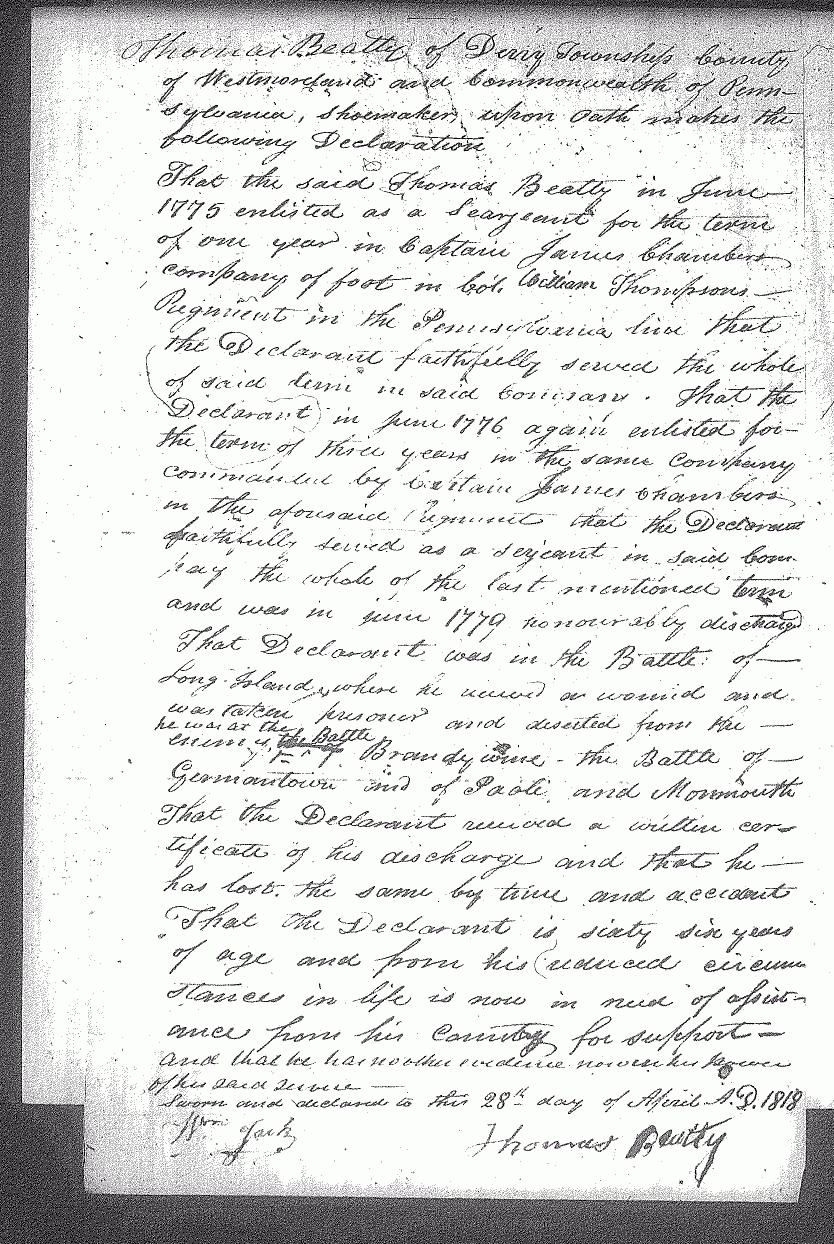 Thomas Beatty of Derry Township County
of Westmoreland and Commonwealth of Penn-
sylvania, Shoemaker, upon Oath makes the
following Declaration
That the said Thomas Beatty in June
1775 enlisted as a Searjeant for the term
of one year in Captain James Chambers
company of foot in Col. William Thompsons
Regiment in the Pennsylvania line that
the Declarant faithfully served the whole
of said term in said Company. That the
Declarant in June 1776 again enlisted for
the term of three years in the same company
commanded by Captain James Chambers
in the aforesaid Regiment that the Declarant
faithfully served as a serjeant in said Com-
pay the whole of the last mentioned term
and was in June 1779 honourably discharg
That Declarant was in the Battle of
Long Island, where he received a wound and
was taken prisoner and deserted from the
he was at the
enemy, the Battle of Brandywine - the Battle of
Germantown and of Paoli and Monmouth
That the Declarant received a written cer-
tificate of his discharge and that he
has lost the same by time and accident
That the Declarant is sixty six years
of age and from his reduced circum
stances in life is now in need of assist-
ance from his Country for support
and that he has no other evidence now in his power
of his said service
Sworn and declared to this 28th day of April A.D. 1818
Wm Jack Thomas Beatty